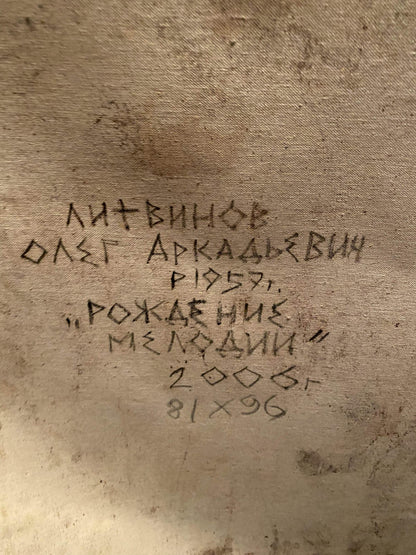 ЛИТВИНОВ
ОЛЕГ АРКАДЬЕВИЧ
Р 1959г.
„РОЖДЕНИЕ
МЕЛОДИИ"
2006г
81X96